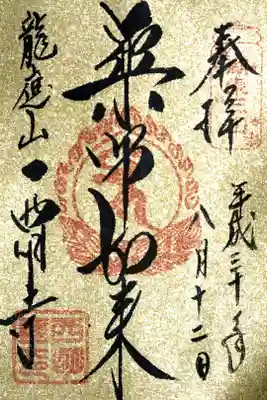 奉拝
平成三十年
八月十二日
薬師如来
龍應山西明寺